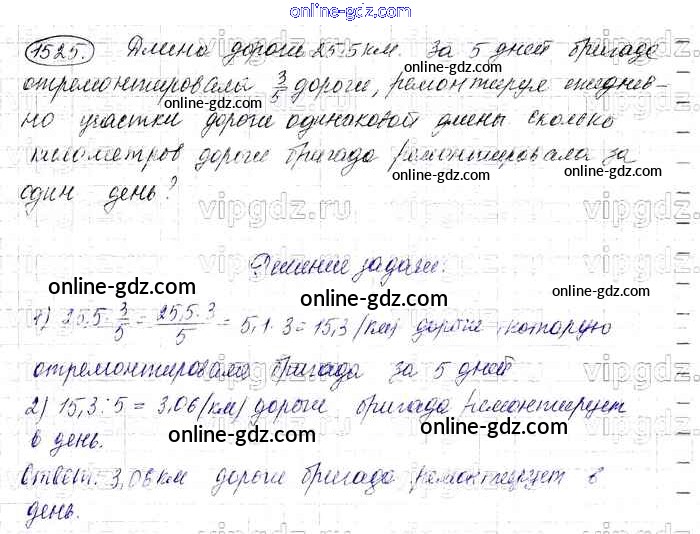 online-gdz.com
1525. Длина дороги 25.5 км. За 5 дней бригада
отремонтировала 3/5 дороги, ремонтируя ежеднев-
но участки дороги одинаковой длины сколько
километров дороги бригада ремонтировала за
один день?
Решение задачи:
1) 25.5 · 3/5 = 25,5 · 3/5 = 5,1 · 3 = 15,3 (км) дороги, которую
отремонтировала бригада за 5 дней
2) 15,3 : 5 = 3,06 (км) дороги бригада ремонтирует
в день.
Ответ: 3,06 км дороги бригада ремонтирует в
день.
online-gdz.com
online-gdz.com
online-gdz.com
online-gdz.com
online-gdz.com
online-gdz.com
online-gdz.com
online-gdz.com
online-gdz.com
online-gdz.com
vipgdz.ru
vipgdz.ru
vipgdz.ru